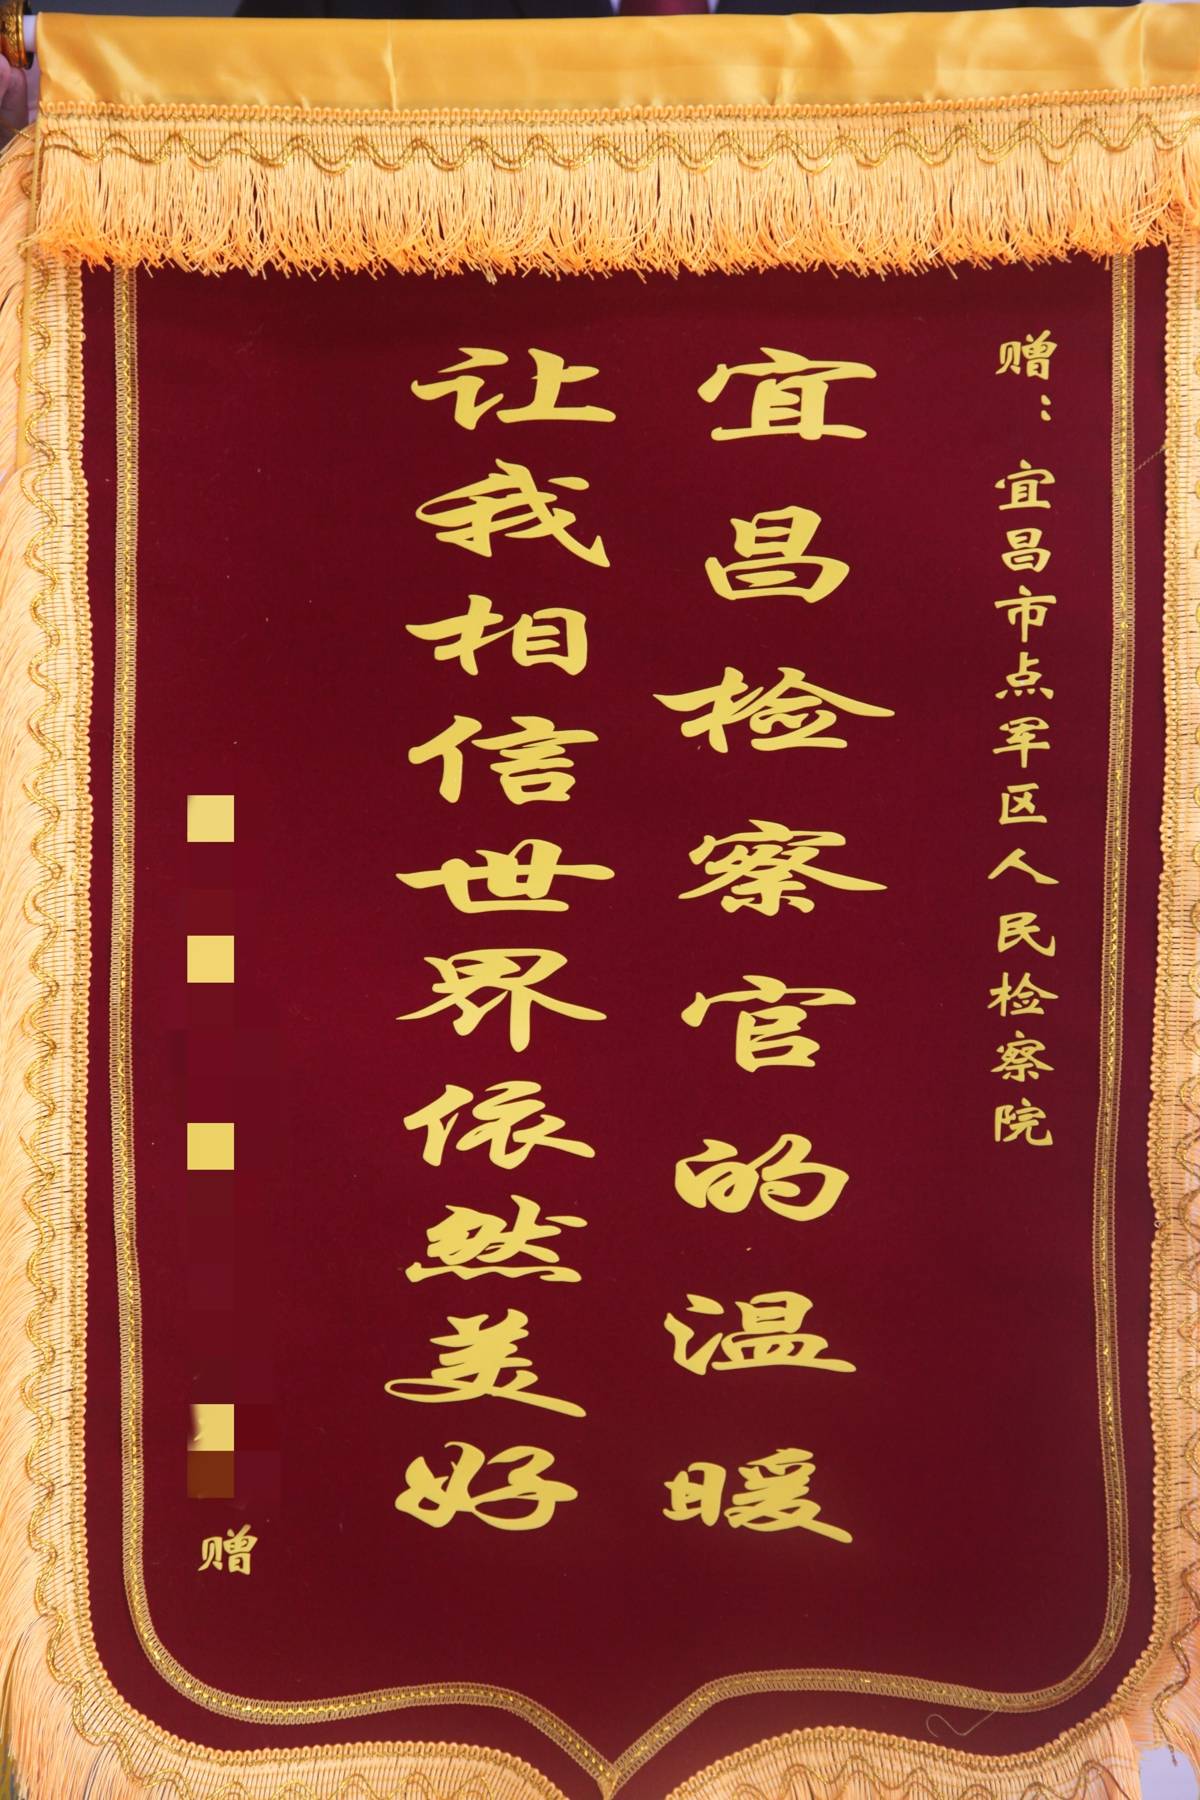 赠：宜昌市点军区人民检察院
宜昌检察官的温暖
让我相信世界依然美好
赠